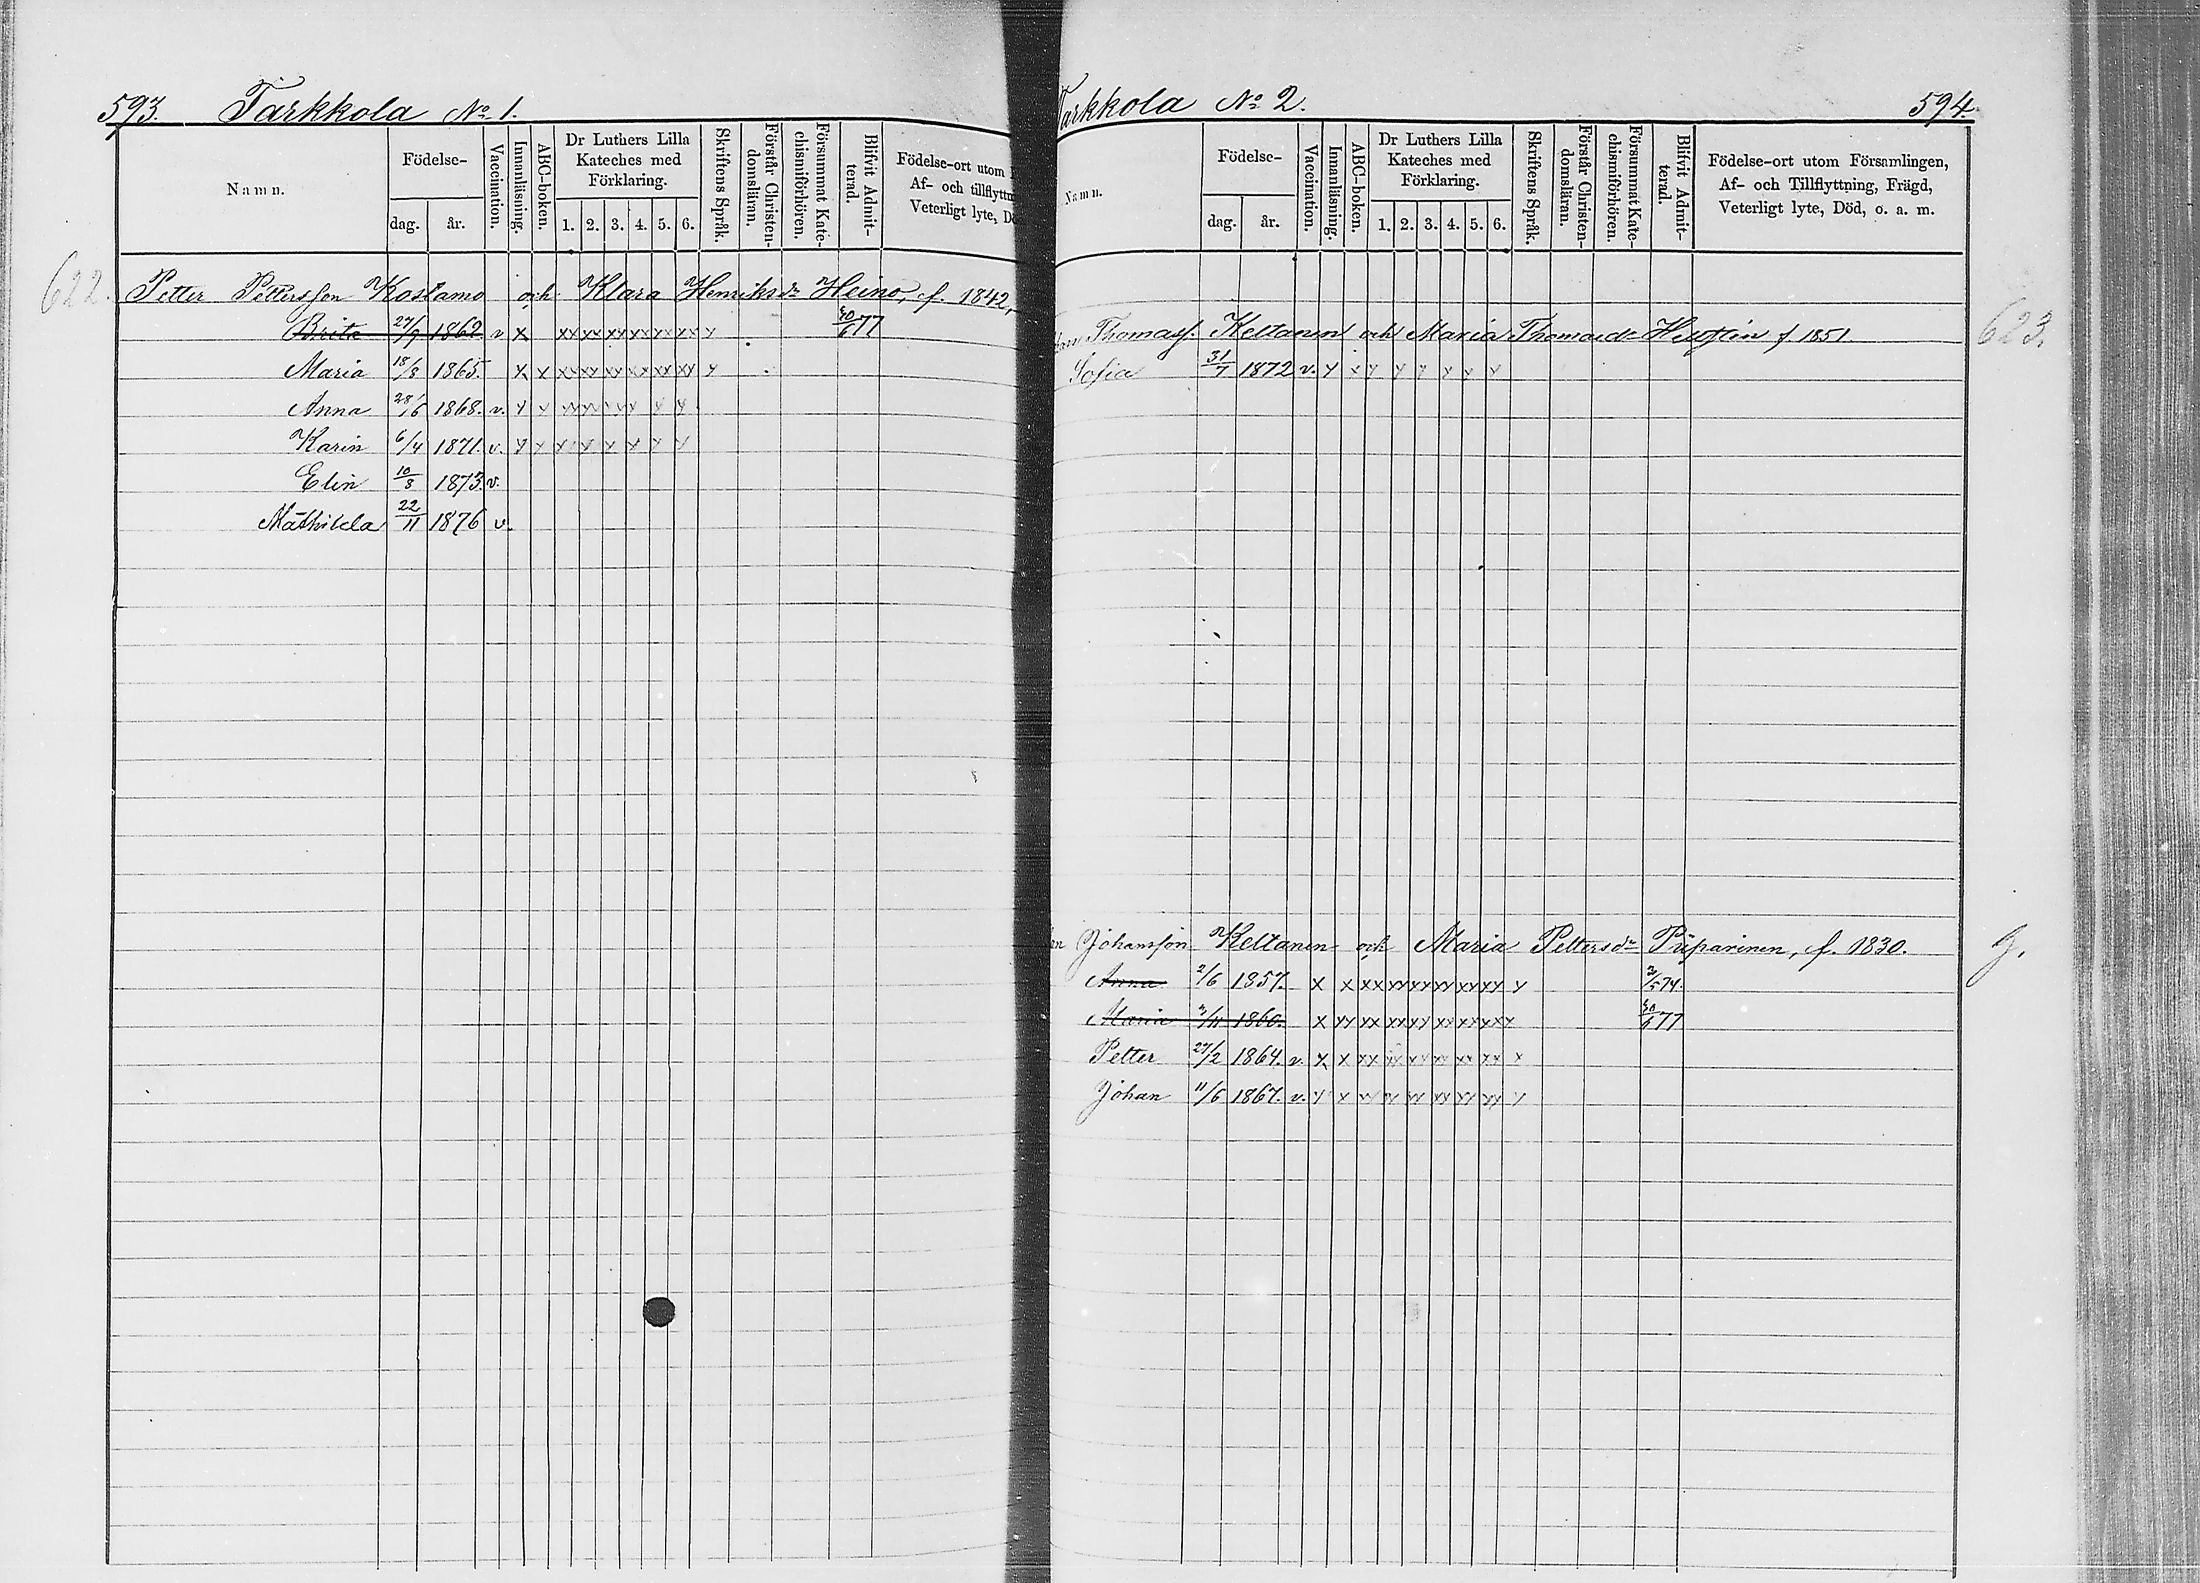 593. Tarkkola No 1.
Namn.
Födelse-
dag. år.
Vaccination.
Innanläsning.
ABC-boken.
Dr Luthers Lilla
Kateches med
Förklaring.
1. 2. 3. 4. 5. 6.
Skriftens Språk.
Förstår Christen-
domsläran.
Försummat Kate-
chismiförhören.
Blifvit Admit-
terad.
Födelse-ort utom
Af- och tillflyttn
Veterligt lyte, Dö
622. Petter Pettersson Kostamo och Klara Henriksdr Heino, f. 1842,
Brita 27/9 1862 v x xx xx xx xx xx xx y 30/6 77
Maria 18/8 1865. x x xx xx xx xx xx xx y
Anna 28/6 1868. v. y x xx xx xx x x x
Karin 6/4 1871. v. y x x x x x x x
Elin 10/8 1873. v.
Mathilda 22/11 1876 v.
Tarkkola No 2. 594.
Namn.
Födelse-
dag. år.
Vaccination.
Innanläsning.
ABC-boken.
Dr Luthers Lilla
Kateches med
Förklaring.
1. 2. 3. 4. 5. 6.
Skriftens Språk.
Förstår Christen-
domsläran.
Försummat Kate-
chismiförhören.
Blifvit Admit-
terad.
Födelse-ort utom Församlingen,
Af- och Tillflyttning, Frägd,
Veterligt lyte, Död, o. a. m.
Thomass. Keltanen och Maria Thomasdr f. 1851. 623.
Sofia 31/7 1872 v. y x y y y y y y
Johansson Keltanen och Maria Pettersdr Piiparinen, f. 1830. g.
Anna 2/6 1857. x x xx xx xx xx xx xx y 3/5 74.
Maria /11 1860. x xx xx xx xx xx xx xx 30/6 77
Petter 27/2 1864. v. x x xx xx xx xx xx xx x
Johan 11/6 1867. v. y x xx xx xx xx xx xx y